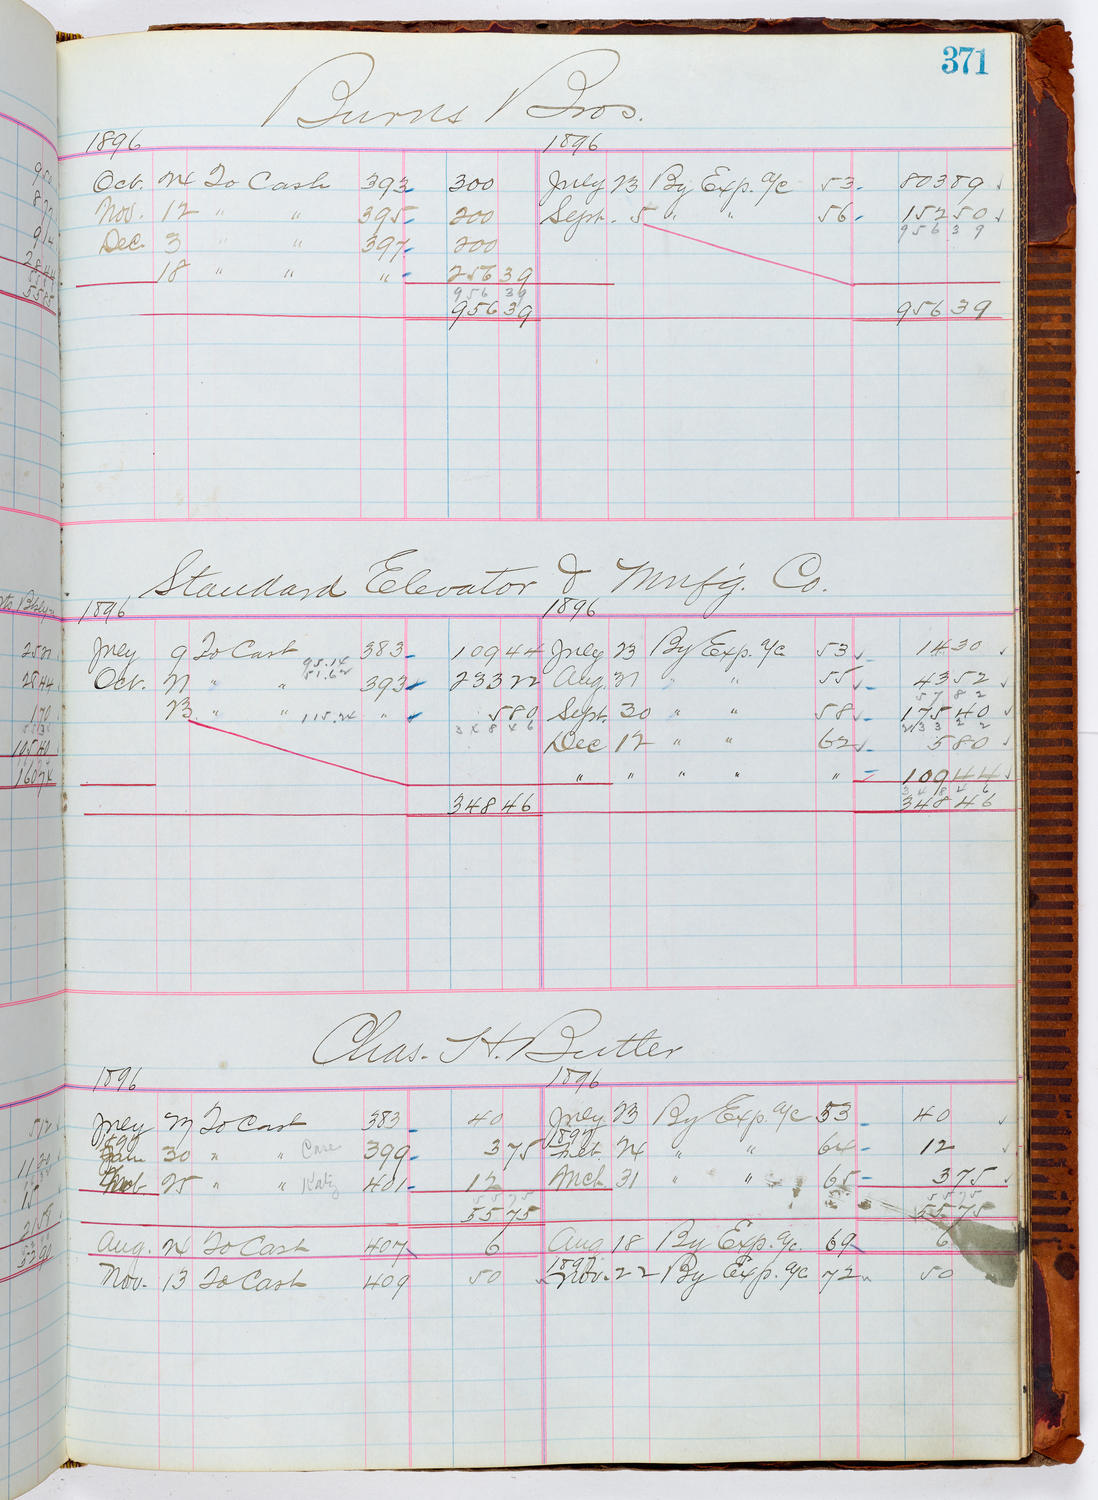 371
Burns Bros.
1896 1896
Oct. 24 To Cash 393 300 July 23 By Exp. a/c 53 803 89
Nov. 12 " " 395 200 Sept. 5 " " 56 152 50
956 39
Dec. 3 " " 397 200
18 " " " 256 39
956 39
956 39 956 39
Standard Elevator & Mnfg. Co.
1896 1896
July 9 To Cash 383 109 44 July 23 By Exp. a/c 53 14 30
95.14
51.62
Oct. 21 " " 393 233 22 Aug. 31 " " 55 43 52
57 82
23 " " 115.24 " 5 80 Sept. 30 " " 58 175 40
348 46 233 22
Dec 12 " " 62 5 80
" " " " " 109 44
348 46
348 46 348 46
Chas. H. Butler
1896 1896
July 27 To Cash 383 40 July 23 By Exp a/c 53 40
1897 1897
Jan. 30 " " Case 399 3 75 Feb. 24 " " 64 12
Feb. 25 " " 401 12 Mch 31 " " 65 3 75
55 75 55 75
55 75 55 75
Aug. 24 To Cash 407 6 Aug. 18 By Exp. a/c. 69 6
1897
Nov. 13 To Cash 409 50 Nov. 22 By Exp. a/c 72 50